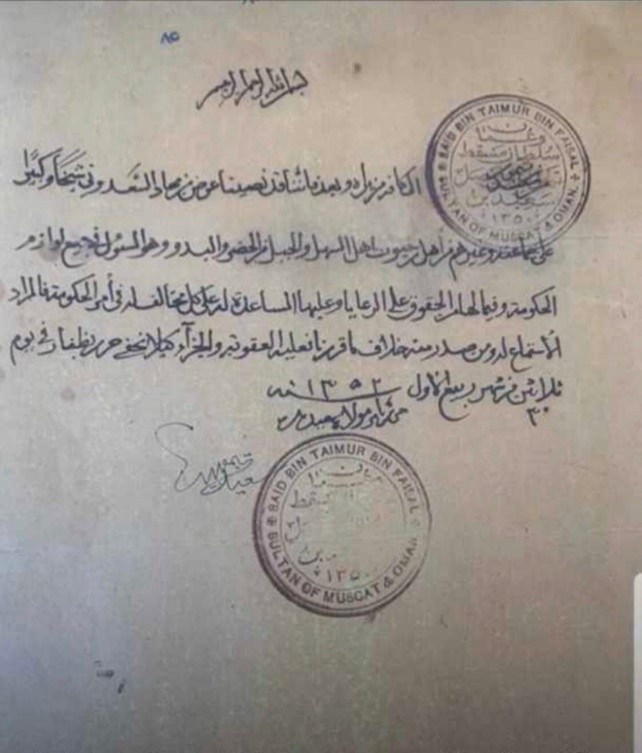 بسم الله الرحمن الرحيم
الى كافة من يراه وبعد فاننا قد نصبنا عوض بن محاد السعدوني شيخا وكبيرا
على جماعته وغيرهم من أهل رخيوت اهل السهل والجبل من الحضر والبدو وهو المسؤل في جميع لوازم
الحكومة وفيما لها من الحقوق على الرعايا وعليها المساعدة له على كل مخالف له في أمر الحكومة فالمراد
الاستماع له ومن صدر منه خلاف ما قررنا فعليه العقوبة والجزاء كيلا يخفى حرر بظفار في يوم
ثلاثين من شهر ربيع الاول سنة ١٣٥٢
٣٠
مولاي سعيد
SAID BIN TAIMUR BIN FAISAL
SULTAN OF MUSCAT & OMAN
سلطان مسقط
١٣٥٠
SAID BIN TAIMUR BIN FAISAL
SULTAN OF MUSCAT & OMAN
١٣٥٠